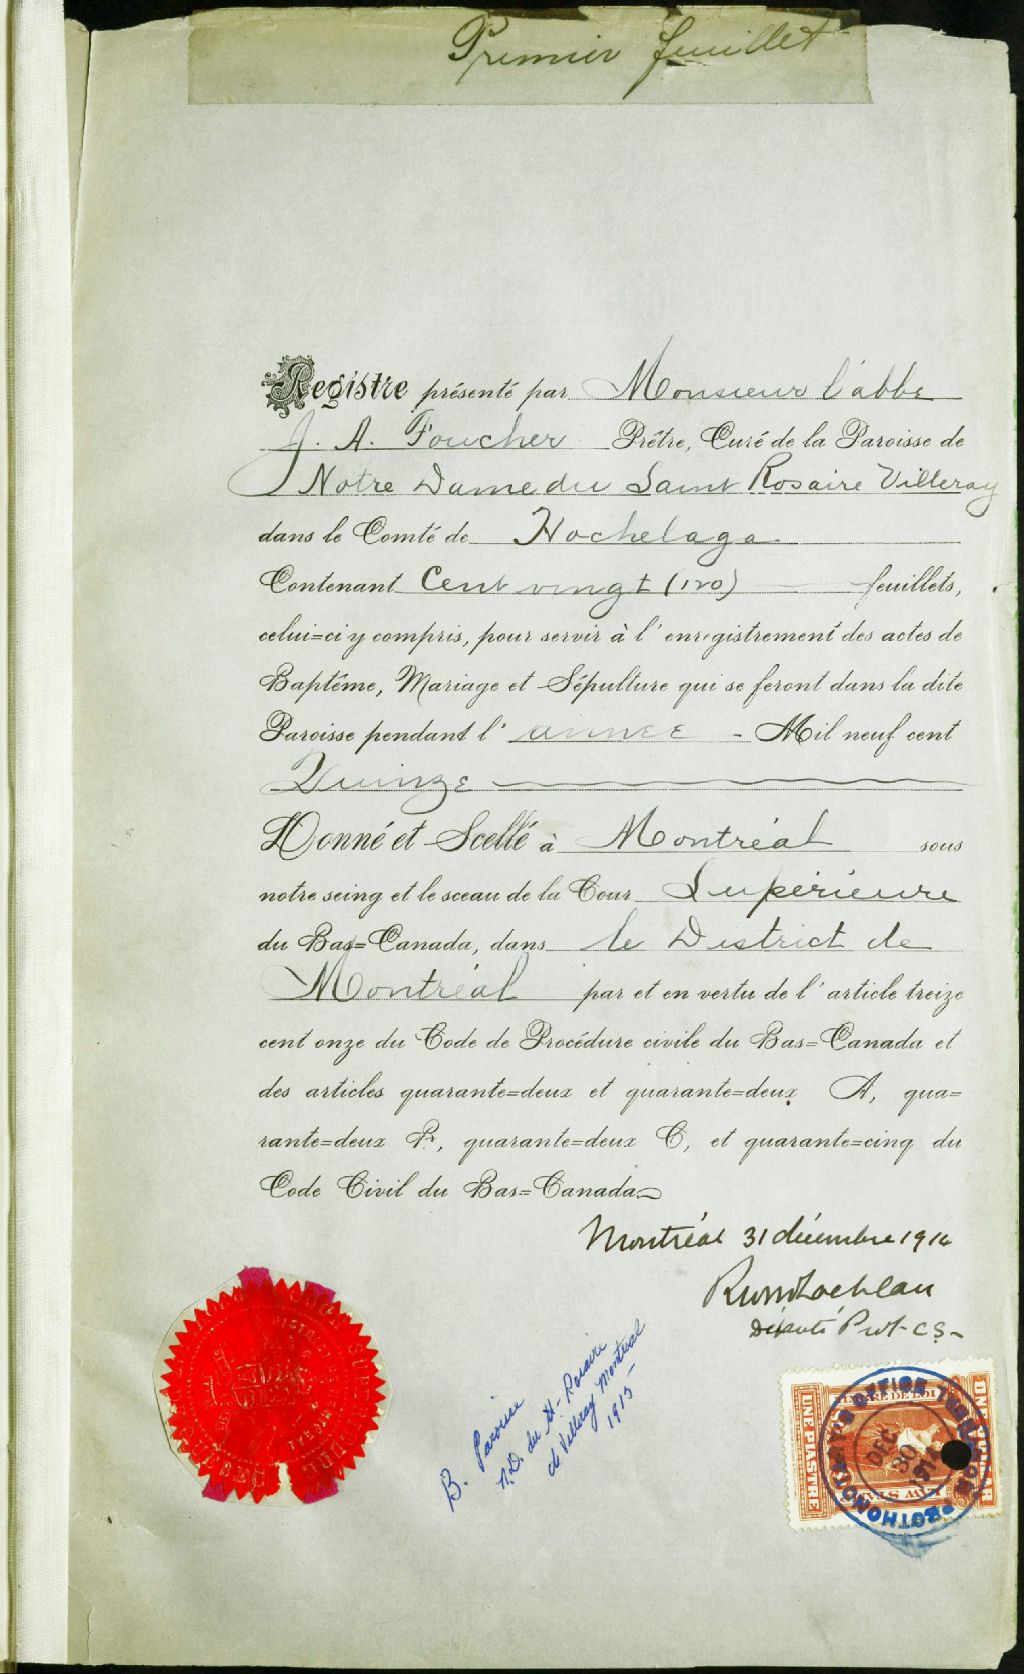 Premier feuillet
Registre présenté par Monsieur l'abbé
J. A. Foucher Prêtre, Curé de la Paroisse de
Notre Dame du Saint Rosaire Villeray
dans le Comté de Hochelaga
Contenant Cent vingt (120) feuillets,
celui=ci y compris, pour servir à l'enregistrement des actes de
Baptême, Mariage et Sépulture qui se feront dans la dite
Paroisse pendant l'année - Mil neuf cent
Quinze
Donné et Scellé à Montréal sous
notre seing et le sceau de la Cour Supérieure
du Bas=Canada, dans le District de
Montréal par et en vertu de l'article treize
cent onze du Code de Procédure civile du Bas=Canada et
des articles quarante=deux et quarante=deux A, qua=
rante=deux B, quarante=deux C, et quarante=cinq du
Code Civil du Bas=Canada
Montréal 31 décembre 1914
Député Prot. C.S.
B. Paroisse
N.D. du St-Rosaire
de Villeray Montréal
1915
UNE PIASTRE
DEC
30
1914